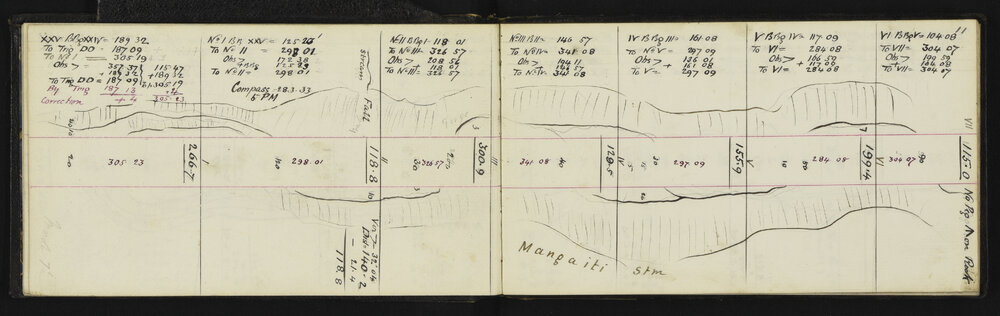 XXV BBgXXIV = 189 32
To Trig DD = 187 09
To No I = 305 19
Obs > = 357 37
+ 189 32
115 47
+ 189 32
To Trig DD = 187 09
305 19
By Trig 187 13
Correction + 4
305 23
No I BB XXV = 125 23
To No II = 298 01
Obs > 172 38
125 23
To No II = 298 01
Compass 28.3.33
5 PM
Stream
No II BBg I = 118 01
To No III = 326 57
Obs > 208 56
118 01
To No III = 326 57
No III B II = 146 57
To No IV = 341 08
Obs > 194 11
146 57
To No IV = 341 08
IV B Bg III = 161 08
To No V = 297 09
Obs > 136 01
161 08
To V = 297 09
V B Bg IV = 117 09
To VI = 284 08
Obs > 166 59
+ 117 09
To VI = 284 08
VI B BgV = 104 08
To VII = 304 07
Obs > 199 59
+ 104 08
To VII = 304 07
11
Fall
20
305 23
266.7
I
298.01
118.8
II
30
326 57
300.9
III
341 08
128.5
IV
30
297.09
155.9
V
284 08
199.4
VI
304 07
VII
115.0
No Peg Iron Rock
Ver > 32.04
Dist 140.2
- 21.4
118.8
Mangaiti Stm